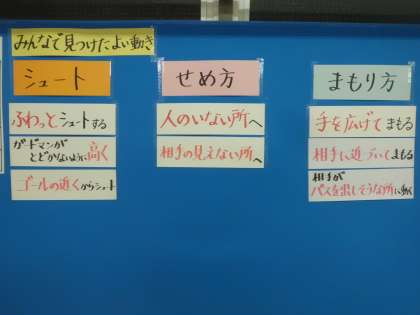 みんなで見つけたよい動き
シュート
ふわっとシュートする
ガードマンが
とどかないように高く
ゴールの近くからシュート
せめ方
人のいない所へ
相手の見えない所へ
まもり方
手を広げてまもる
相手に近づいてまもる
相手が
パスを出しそうな所に動く